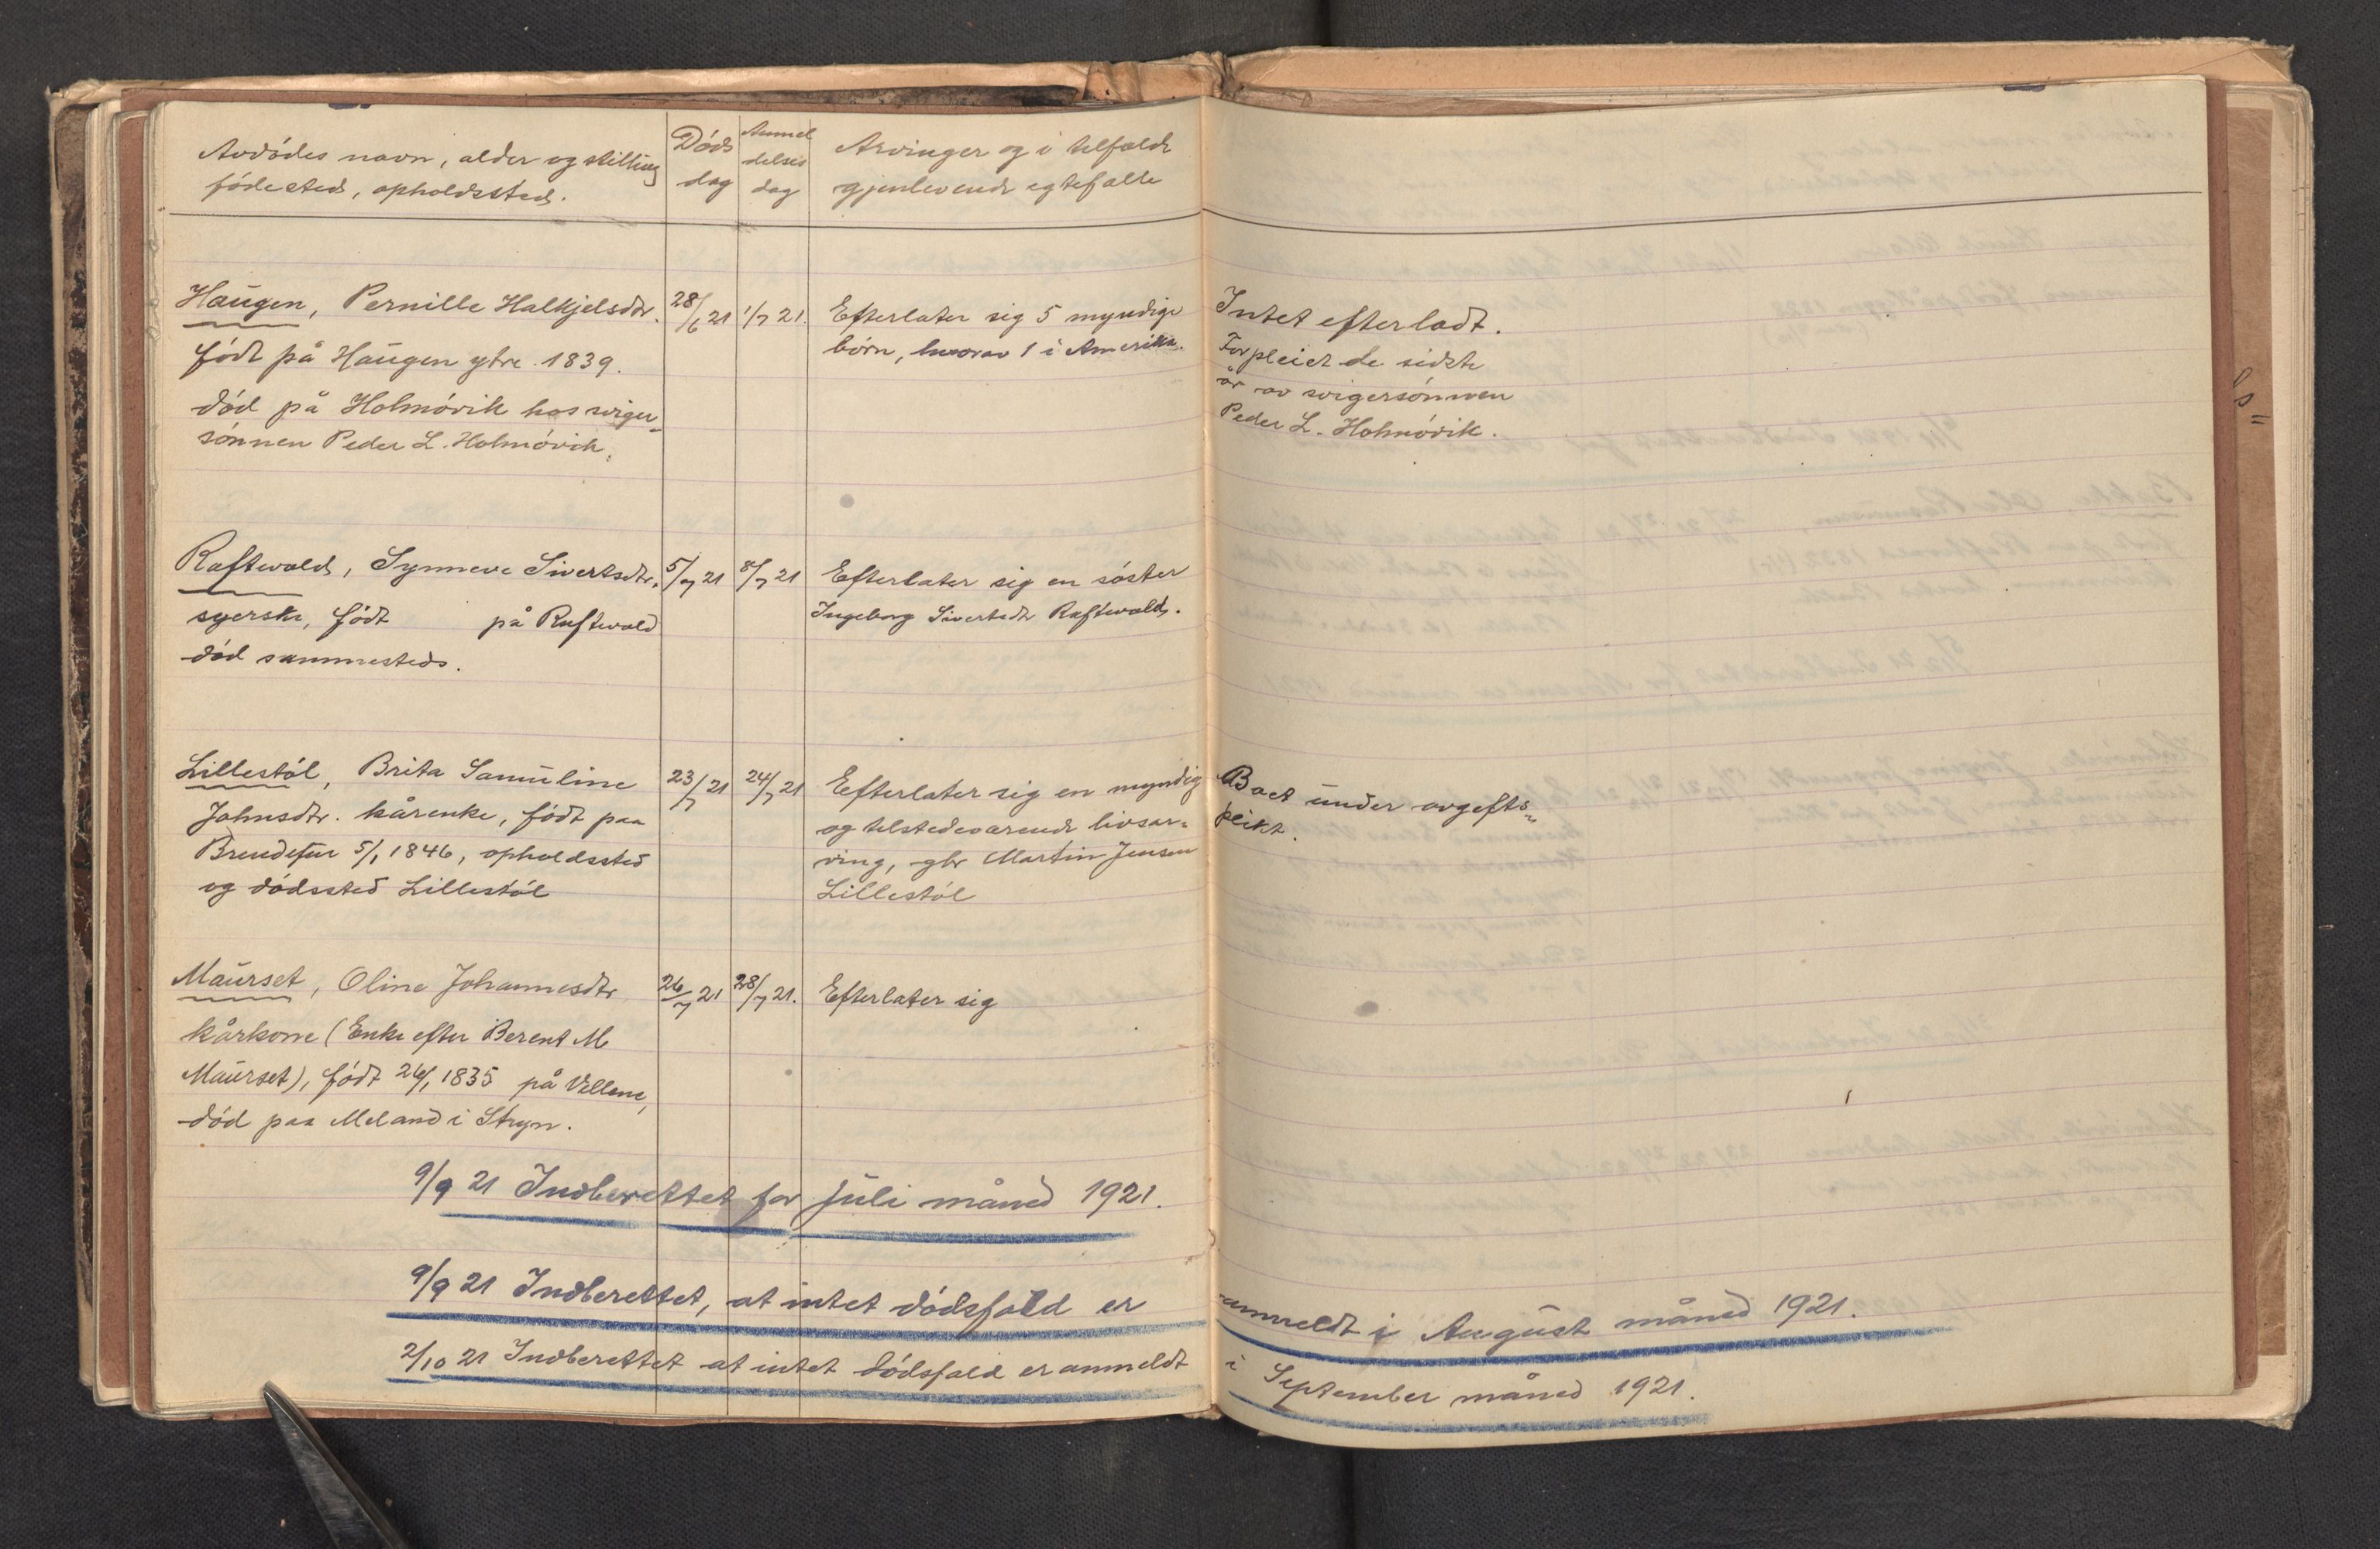 Avdødes navn, alder og stilling
fødested, opholdssted.
Døds
dag
Anmel
delses
dag
Arvinger og i tilfælde
gjenlevende egtefælle
Haugen, Pernille Halkjelsdtr.
født på Haugen ytre 1839.
død på Holmøvik hos sviger-
sønnen Peder L. Holmøvik.
28/6 21
1/7 21.
Efterlater sig 5 myndige
børn, hvorav 1 i Amerika.
Intet efterladt.
Forpleiet de sidste
år av svigersønnen
Peder L. Holmøvik.
Raftevold, Synneve Sivertsdtr.
syerske, født på Raftevold
død sammesteds.
5/7 21
8/7 21
Efterlater sig en søster
Ingeborg Sivertsdtr Raftevold.
Lillestøl, Brita Samuline
Johnsdtr. kårenke, født paa
Brendefur 5/1 1846, opholdssted
og dødssted Lillestøl
23/7 21
24/7 21
Efterlater sig en myndig
og tilstedeværende livsar-
ving, gbr Martin Jensen
Lillestøl
Boet under avgifts-
plikt.
Maurset, Oline Johannesdtr
kårkone (Enke efter Berent M
Maurset), født 26/1 1835 på
død paa Meland i Stryn.
26/7 21
28/7 21.
Efterlater sig
9/9 21 Indberettet for juli måned 1921.
9/9 21 Indberettet, at intet dødsfald er anmeldt i August måned 1921.
2/10 21 Indberettet at intet dødsfald er anmeldt i September måned 1921.